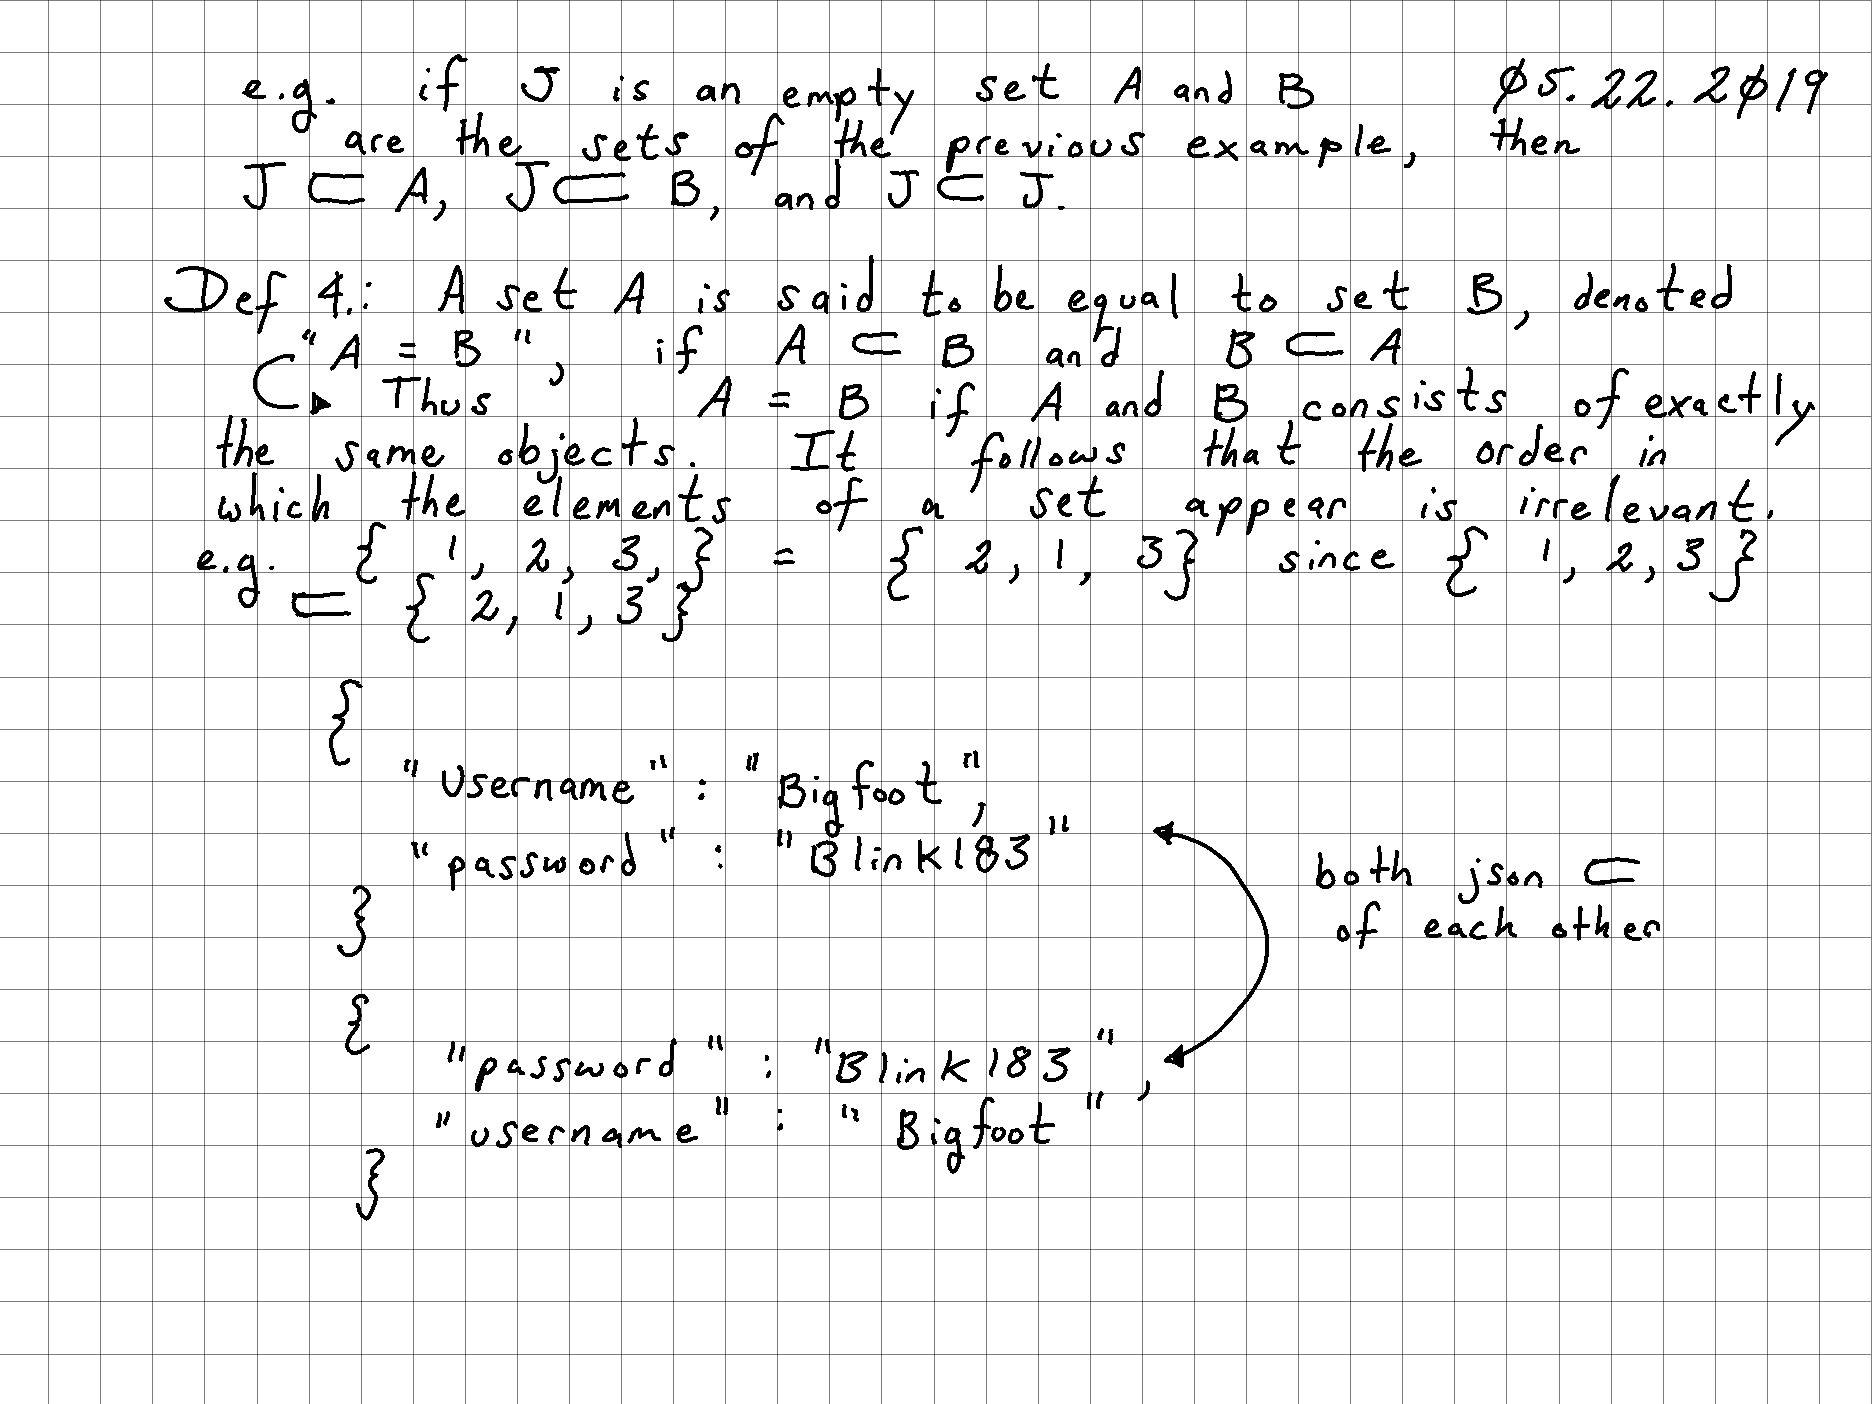 e.g. if J is an empty set A and B Ø5.22.2Ø19
are the sets of the previous example, then
J ⊂ A, J ⊂ B, and J ⊂ J.
Def 4.: A set A is said to be equal to set B, denoted
"A = B", if A ⊂ B and B ⊂ A
Thus A = B if A and B consists of exactly
the same objects. It follows that the order in
which the elements of a set appear is irrelevant.
e.g. { 1, 2, 3, } = { 2, 1, 3} since { 1, 2, 3 }
⊂ { 2, 1, 3 }
{
"Username" : "Bigfoot",
"password" : "Blink183"
}
both json ⊂
of each other
{
"password" : "Blink183",
"username" : "Bigfoot"
}